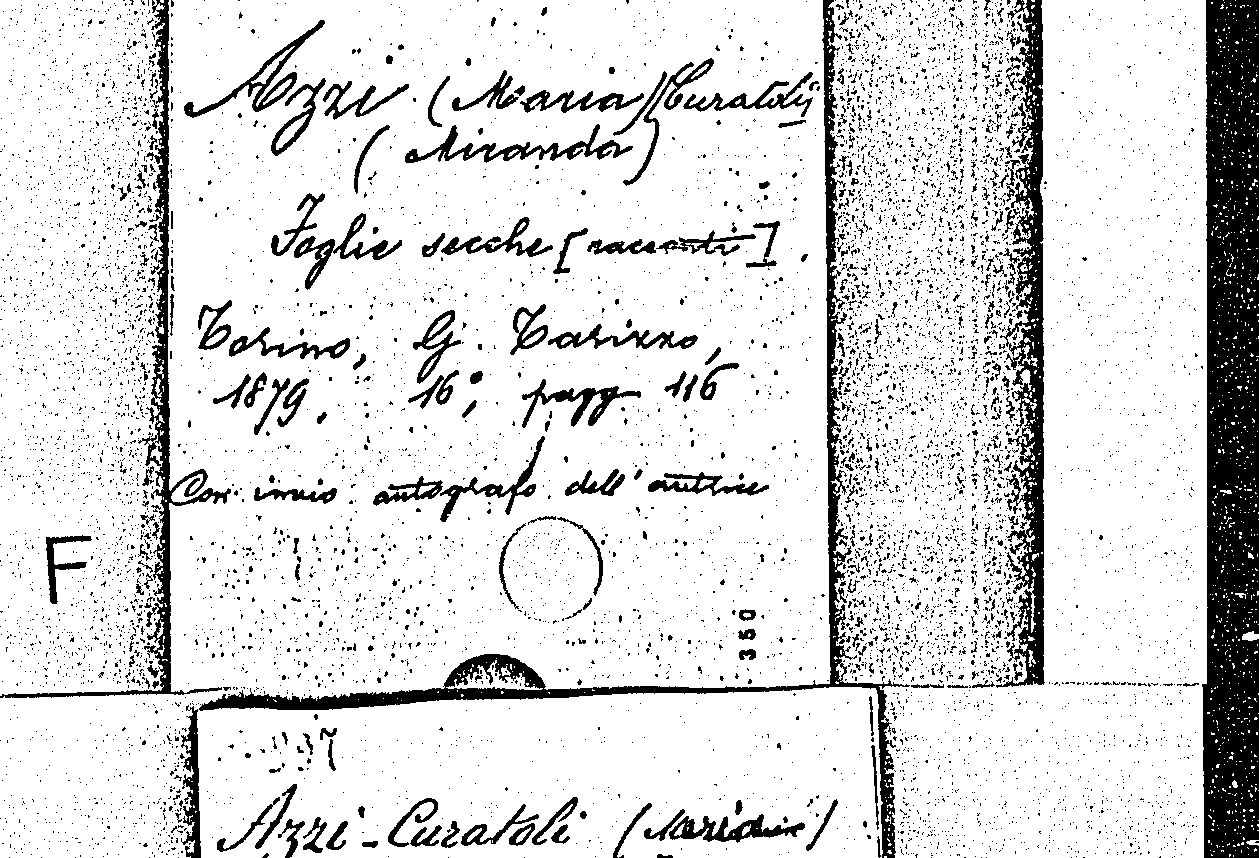 Azzi (Maria) (Curatoli)
(Miranda)
Foglie secche [racconti].
Torino, G. Tarizzo,
1879. 16°, pagg 116
Con invio autografo dell'autrice
F
350
Azzi-Curatoli